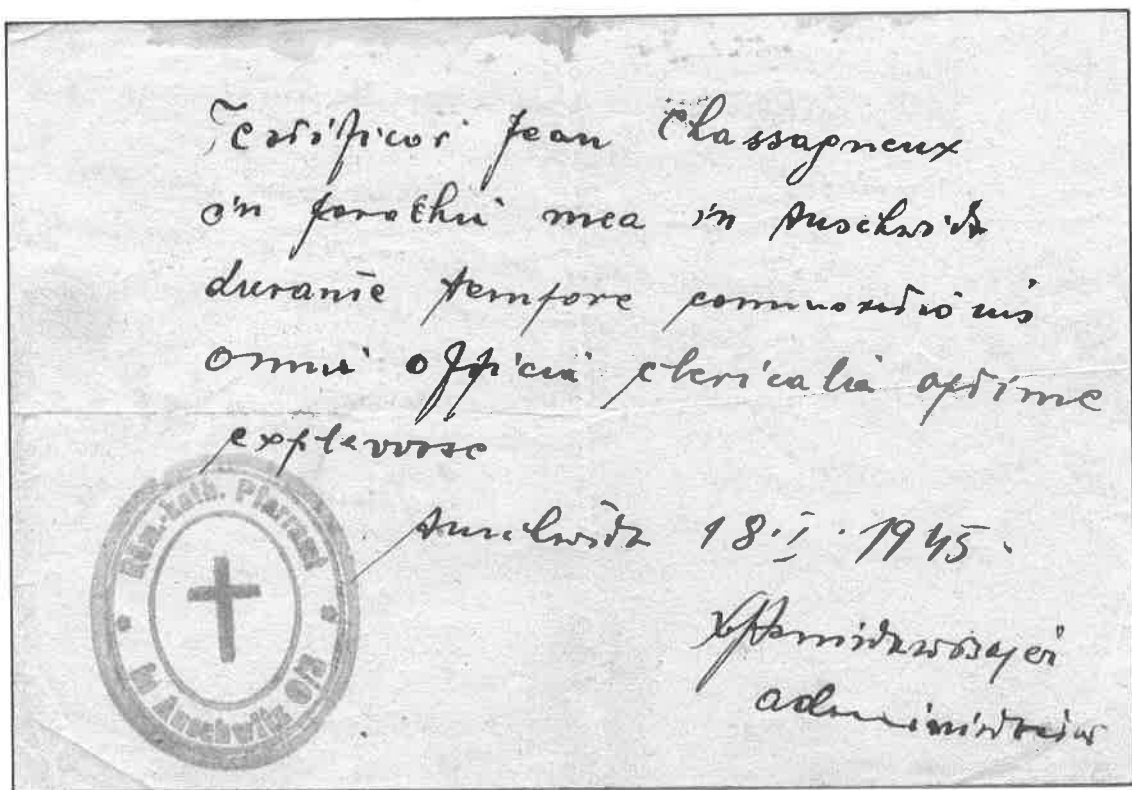 Testificor Jean Chassagneux
in parochia mea in Auschwitz
durante tempore commorationis
omnia officia clericalia optime
explevisse
Auschwitz 18.I.1945.
administrator
Röm.-kath. Pfarramt
in Auschwitz O/S